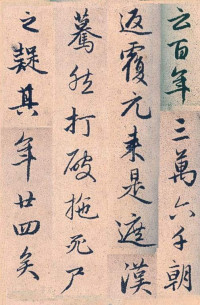 云百年三萬六千朝
返覆元来是遮漢
驀然打破拖死尸
之疑其年廿四矣